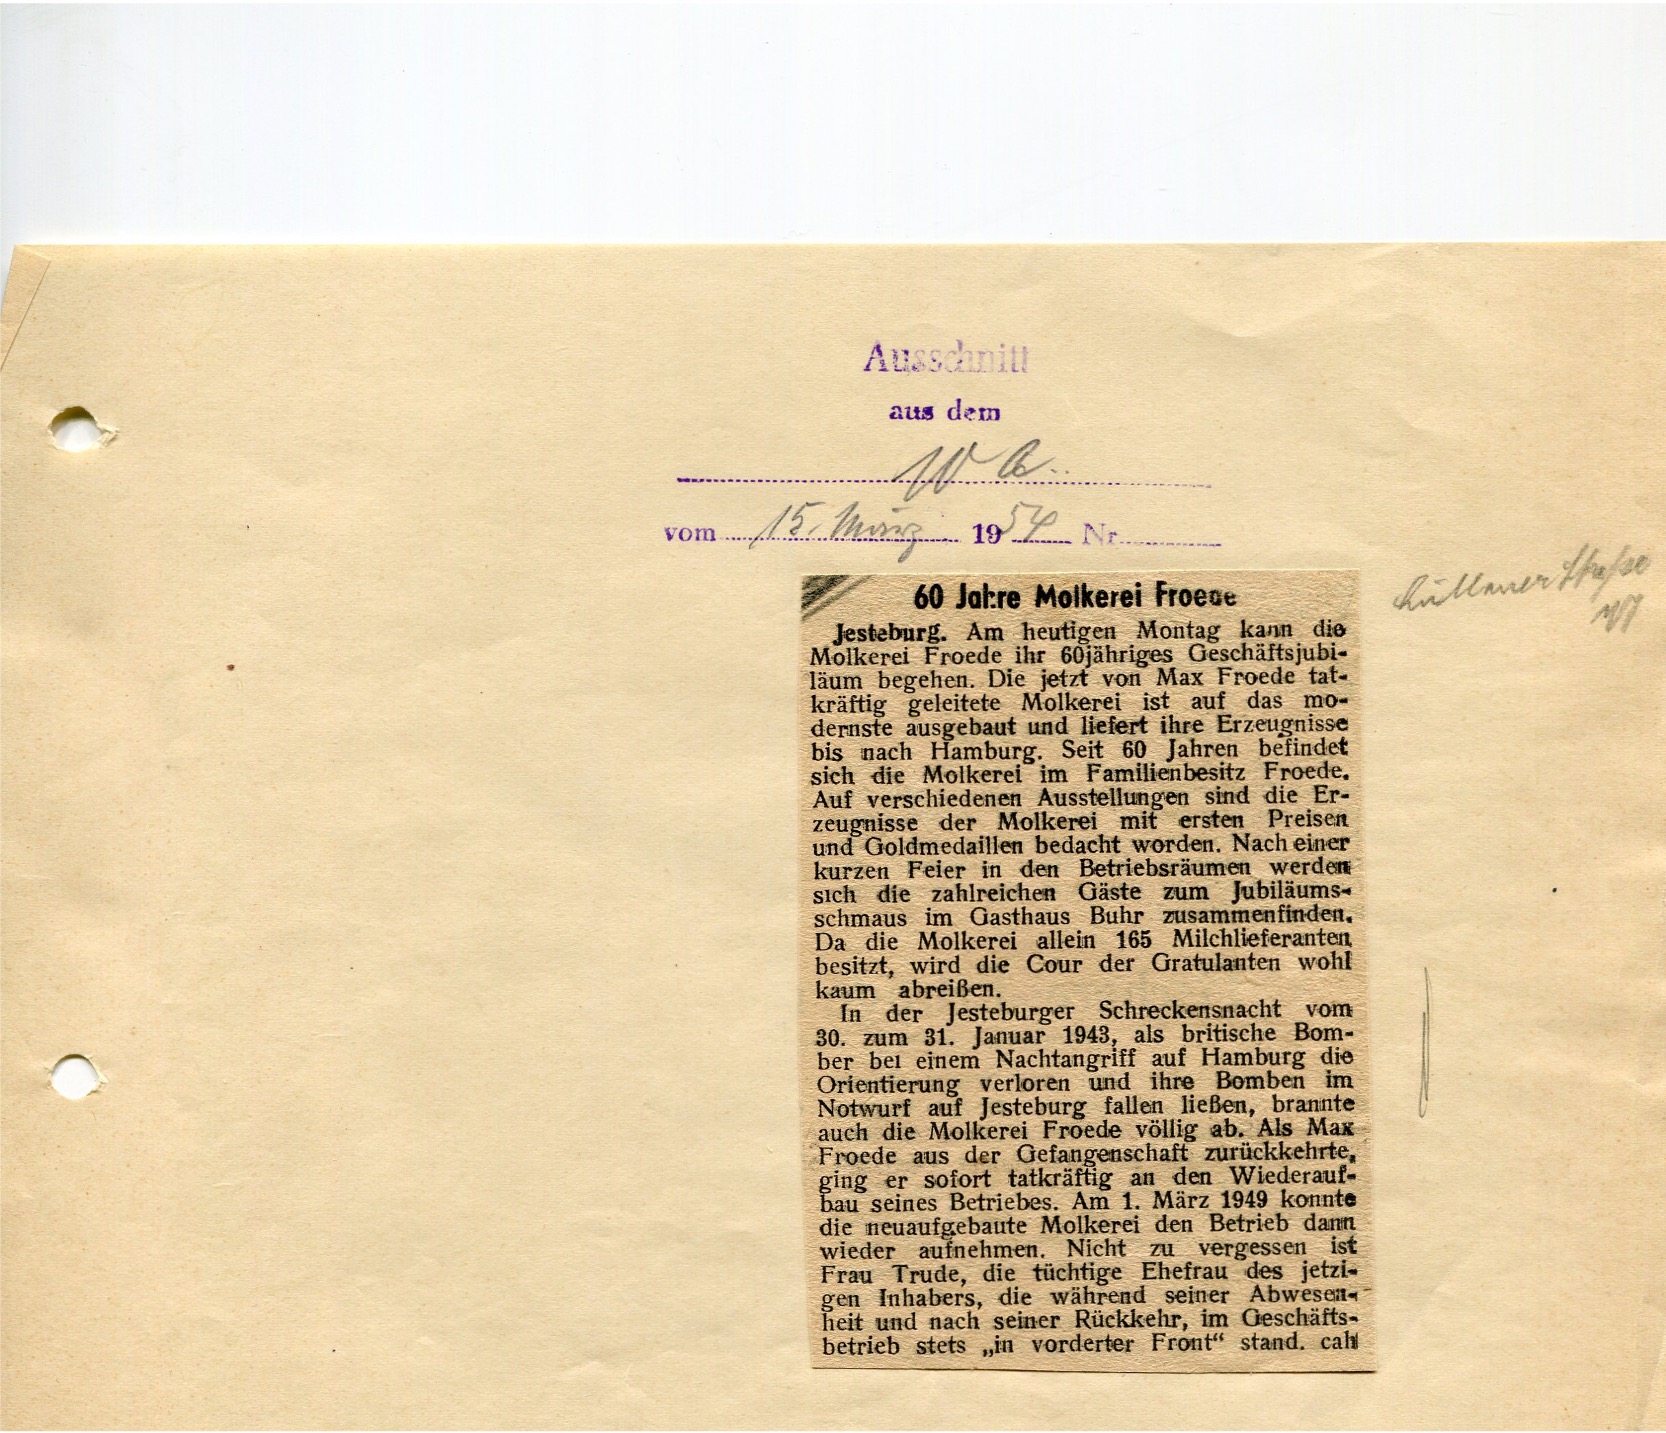 Ausschnitt
aus dem
W A
vom 15. März 1954 Nr.
60 Jahre Molkerei Froede
Jesteburg. Am heutigen Montag kann die
Molkerei Froede ihr 60jähriges Geschäftsjubi-
läum begehen. Die jetzt von Max Froede tat-
kräftig geleitete Molkerei ist auf das mo-
dernste ausgebaut und liefert ihre Erzeugnisse
bis nach Hamburg. Seit 60 Jahren befindet
sich die Molkerei im Familienbesitz Froede.
Auf verschiedenen Ausstellungen sind die Er-
zeugnisse der Molkerei mit ersten Preisen
und Goldmedaillen bedacht worden. Nach einer
kurzen Feier in den Betriebsräumen werden
sich die zahlreichen Gäste zum Jubiläums-
schmaus im Gasthaus Buhr zusammenfinden.
Da die Molkerei allein 165 Milchlieferanten
besitzt, wird die Cour der Gratulanten wohl
kaum abreißen.
In der Jesteburger Schreckensnacht vom
30. zum 31. Januar 1943, als britische Bom-
ber bei einem Nachtangriff auf Hamburg die
Orientierung verloren und ihre Bomben im
Notwurf auf Jesteburg fallen ließen, brannte
auch die Molkerei Froede völlig ab. Als Max
Froede aus der Gefangenschaft zurückkehrte,
ging er sofort tatkräftig an den Wiederauf-
bau seines Betriebes. Am 1. März 1949 konnte
die neuaufgebaute Molkerei den Betrieb dann
wieder aufnehmen. Nicht zu vergessen ist
Frau Trude, die tüchtige Ehefrau des jetzi-
gen Inhabers, die während seiner Abwesen-
heit und nach seiner Rückkehr, im Geschäfts-
betrieb stets „in vorderter Front“ stand. cah